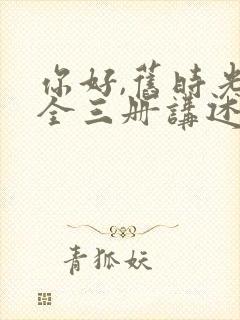 你好,舊時光
全三册講述
青狐妖